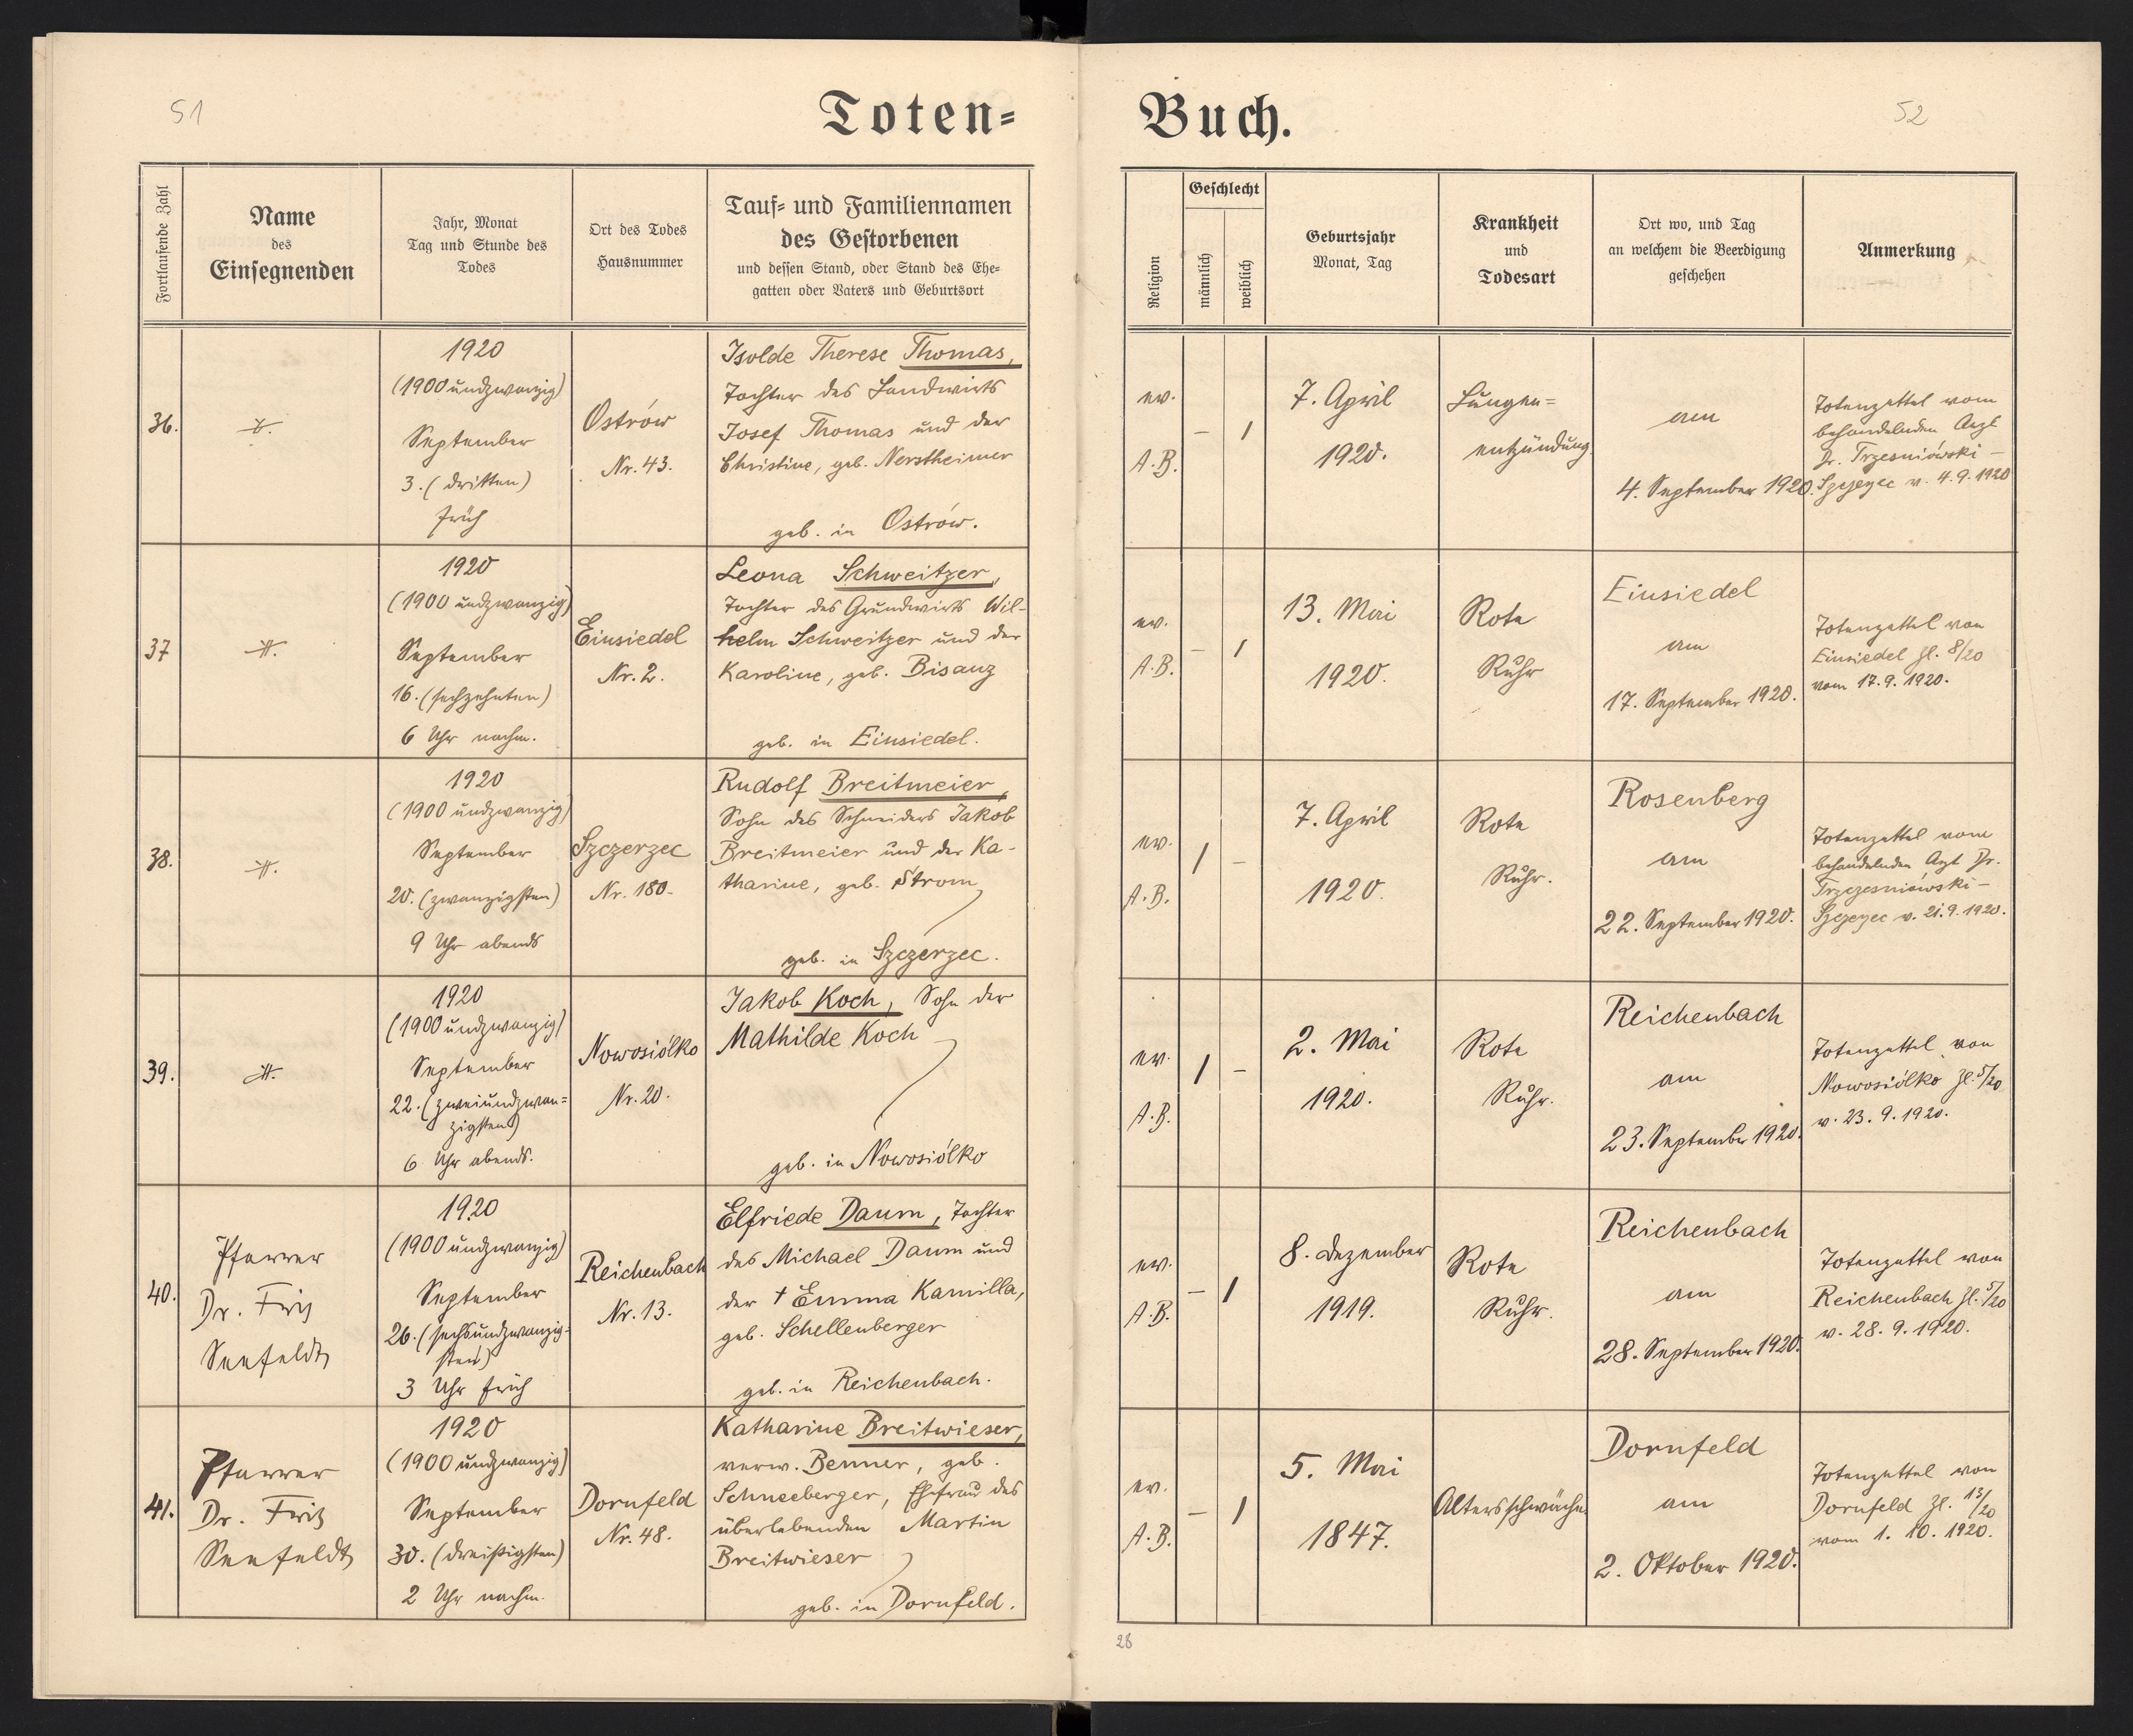 51
Toten=
Fortlaufende Zahl
Name
des
Einsegnenden
Jahr, Monat
Tag und Stunde des
Todes
Ort des Todes
Hausnummer
Tauf= und Familiennamen
des Gestorbenen
und dessen Stand, oder Stand des Ehe=
gatten oder Vaters und Geburtsort
36.
1920
(1900 undzwanzig)
September
3. (dritten)
früh
Ostrów
Nr. 43.
Isolde Therese Thomas,
Tochter des Landwirts
Josef Thomas und der
Christine, geb. Nerstheimer
geb. in Ostrów.
37
1920
(1900 undzwanzig)
September
16. (sechzehnten)
6 Uhr nachm.
Einsiedel
Nr. 2.
Leona Schweitzer,
Tochter des Grundwirts Wil-
helm Schweitzer und der
Karoline, geb. Bisanz
geb. in Einsiedel.
38.
1920
(1900 undzwanzig)
September
20. (zwanzigsten)
9 Uhr abends
Szczerzec
Nr. 180.
Rudolf Breitmeier,
Sohn des Schneiders Jakob
Breitmeier und der Ka-
tharine, geb. Strom
geb. in Szczerzec.
39.
1920
(1900 undzwanzig)
September
22. (zweiundzwan=
zigsten)
6 Uhr abends.
Nowosiólko
Nr. 20.
Jakob Koch, Sohn der
Mathilde Koch
geb. in Nowosiólko
40.
Pfarrer
Dr. Fritz
Seefeldt
1920
(1900 undzwanzig)
September
26. (sechsundzwanzig-
sten)
3 Uhr früh
Reichenbach
Nr. 13.
Elfriede Daum, Tochter
des Michael Daum und
der † Emma Kamilla,
geb. Schellenberger
geb. in Reichenbach.
41.
Pfarrer
Dr. Fritz
Seefeldt
1920
(1900 undzwanzig)
September
30. (dreißigsten)
2 Uhr nachm.
Dornfeld
Nr. 48.
Katharine Breitwieser,
verw. Benner, geb.
Schneeberger, Ehefrau des
überlebenden Martin
Breitwieser
geb. in Dornfeld.
52
Buch.
Religion
Geschlecht
männlich
weiblich
Geburtsjahr
Monat, Tag
Krankheit
und
Todesart
Ort wo, und Tag
an welchem die Beerdigung
geschehen
Anmerkung
ev.
A.B.
– /
7. April
1920.
Lungen=
entzündung.
am
4. September 1920.
Totenzettel vom
behandelnden Arzt
Dr. Trzesniówski –
Szczerzec v. 4.9.1920
ev.
A.B.
– /
13. Mai
1920.
Rote
Ruhr
Einsiedel
am
17. September 1920.
Totenzettel von
Einsiedel Zl. 8/20
vom 17.9.1920.
ev.
A.B.
/ –
7. April
1920.
Rote
Ruhr.
Rosenberg
am
22. September 1920.
Totenzettel vom
behandelnden Arzt Dr.
Trzczesniówski –
Szczerzec v. 21.9.1920.
ev.
A.B.
/ –
2. Mai
1920.
Rote
Ruhr.
Reichenbach
am
23. September 1920.
Totenzettel von
Nowosiólko Zl. 5/20
v. 23.9.1920.
ev.
A.B.
– /
8. Dezember
1919.
Rote
Ruhr.
Reichenbach
am
28. September 1920.
Totenzettel von
Reichenbach Zl. 5/20
v. 28.9.1920.
ev.
A.B.
– /
5. Mai
1847.
Altersschwäche.
Dornfeld
am
2. Oktober 1920.
Totenzettel von
Dornfeld Zl. 13/20
vom 1. 10. 1920.
28